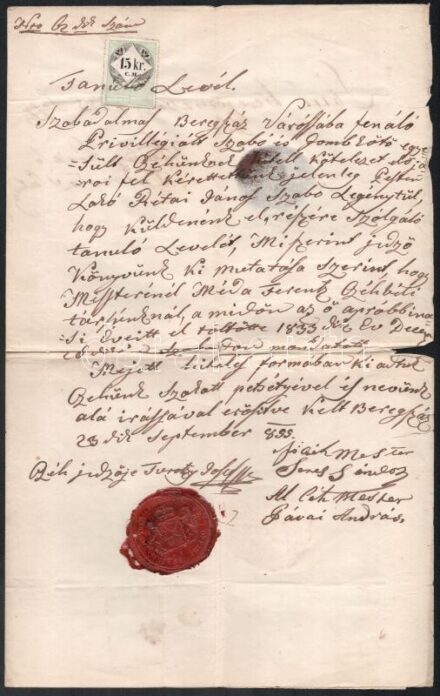 Nro 62 dik Szám
15 kr.
C.M.
Tanuló Levél.
Szabadalmas Beregszáz Várossába fenáló
Privillégiált Szabó és Gombkötő egye-
sült Czéhünknek kötelezet elöl
járói fel kérettetvén jelenleg Pesten
Lakó Rétai János Szabo Legénytül,
hogy küldenénk el, részére Szolgáló
tanuló Levelét, Miszerint jedző
Könyvünk ki mutatása Szerint, hogy
Miszterénél Mida Ferentz Czéhbéli
társunknál, a midőn az ő aprobbina-
si Éveitt el töltötte 1853 dik Év Decem
Melyett hiteles formában ki adtuk
Czéhünk Szokott petsétyével is nevünk
alá irássával erősitve Kelt Beregszász
28 dik September 855.
Czéh jedzője
Mester
Seres Sándor
Al Céh Mester
Pávai András